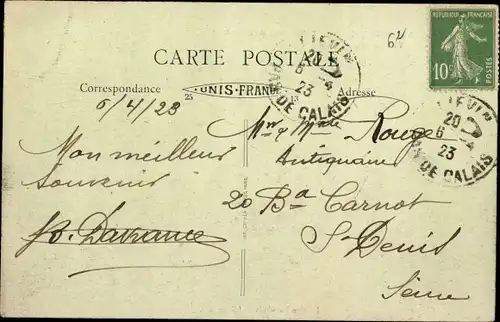 62
CARTE POSTALE
RÉPUBLIQUE FRANÇAISE
10c
POSTES
LIEVIN
20
6 -4
23
PAS DE CALAIS
LIEVIN
20
6 -4
23
PAS DE CALAIS
Correspondance
25
UNIS-FRANCE
Adresse
6/4/23
Mon meilleur
souvenir
Mr & Mme Rouge
Antiquaire
20 Bd Carnot
St Denis
Seine